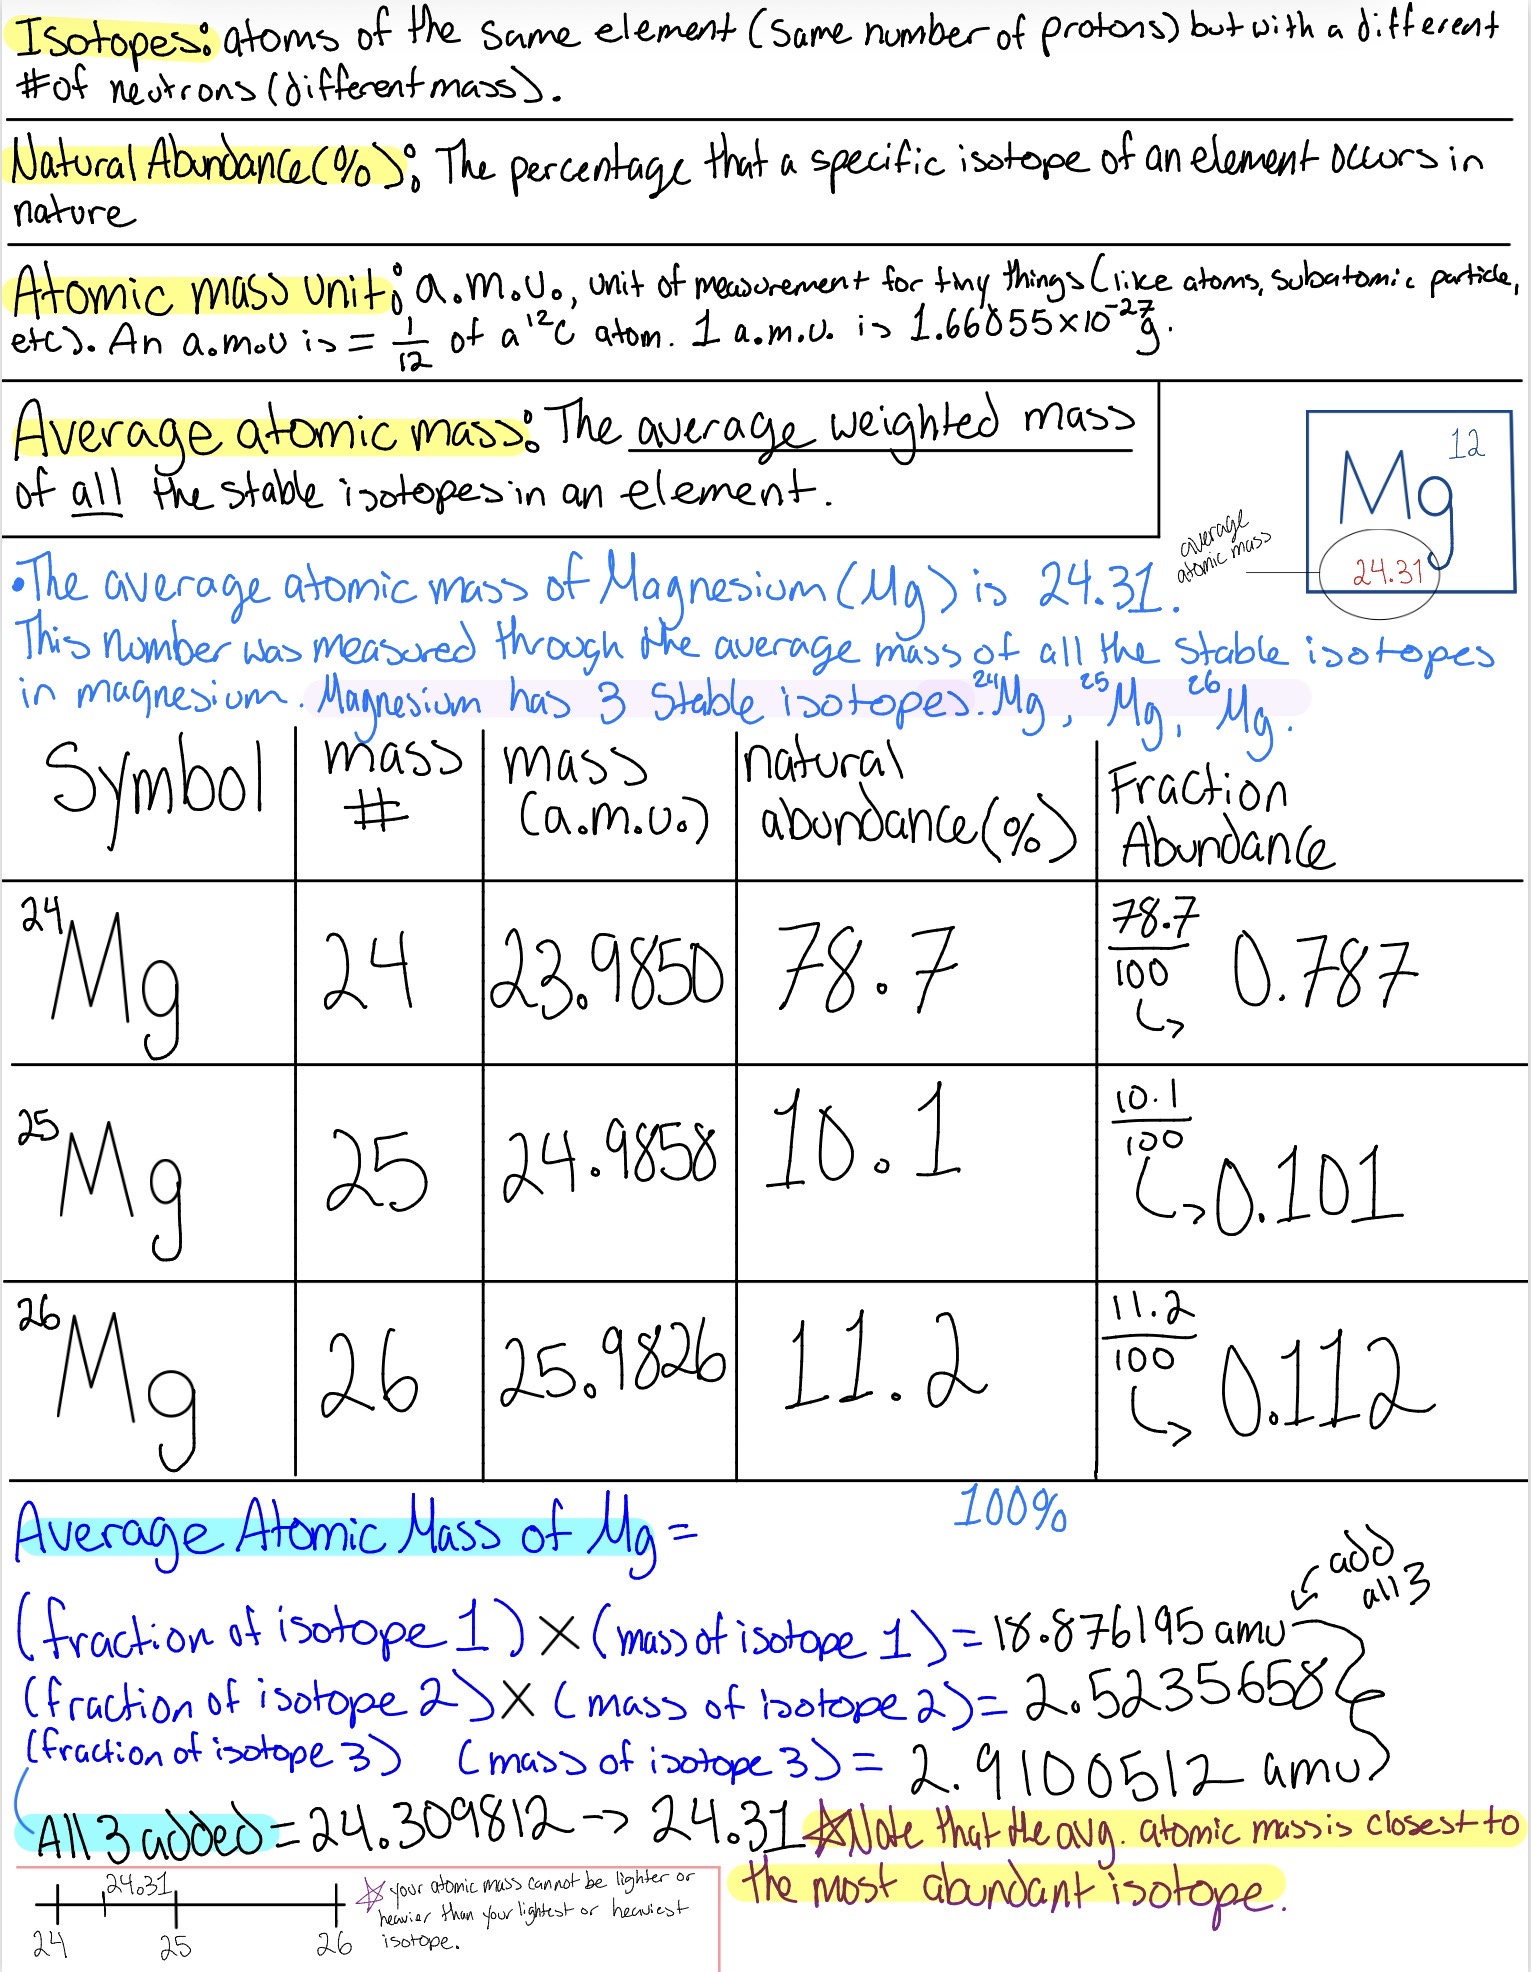 Isotopes: atoms of the same element (same number of protons) but with a different
# of neutrons (different mass).
Natural Abundance (%): The percentage that a specific isotope of an element occurs in
nature
Atomic mass unit: a.m.u., unit of measurement for tiny things (like atoms, subatomic particle,
etc). An a.m.u is = 1/12 of a ¹²C atom. 1 a.m.u. is 1.66055 x 10⁻²⁷ g.
Average atomic mass: The average weighted mass
of all the stable isotopes in an element.
Mg 12
24.31
average
atomic mass
• The average atomic mass of Magnesium (Mg) is 24.31.
This number was measured through the average mass of all the stable isotopes
in magnesium. Magnesium has 3 Stable isotopes. ²⁴Mg, ²⁵Mg, ²⁶Mg.
Symbol | mass # | mass (a.m.u.) | natural abundance (%) | Fraction Abundance
²⁴Mg | 24 | 23.9850 | 78.7 | 78.7/100 ↪ 0.787
²⁵Mg | 25 | 24.9858 | 10.1 | 10.1/100 ↪ 0.101
²⁶Mg | 26 | 25.9826 | 11.2 | 11.2/100 ↪ 0.112
100%
Average Atomic Mass of Mg =
add
all 3
(fraction of isotope 1) X (mass of isotope 1) = 18.876195 amu
(fraction of isotope 2) X (mass of isotope 2) = 2.5235658
(fraction of isotope 3) (mass of isotope 3) = 2.9100512 amu
All 3 added = 24.309812 → 24.31 ☆ Note that the avg. atomic mass is closest to
the most abundant isotope.
24.31
24 25 26
☆ your atomic mass cannot be lighter or
heavier than your lightest or heaviest
isotope.